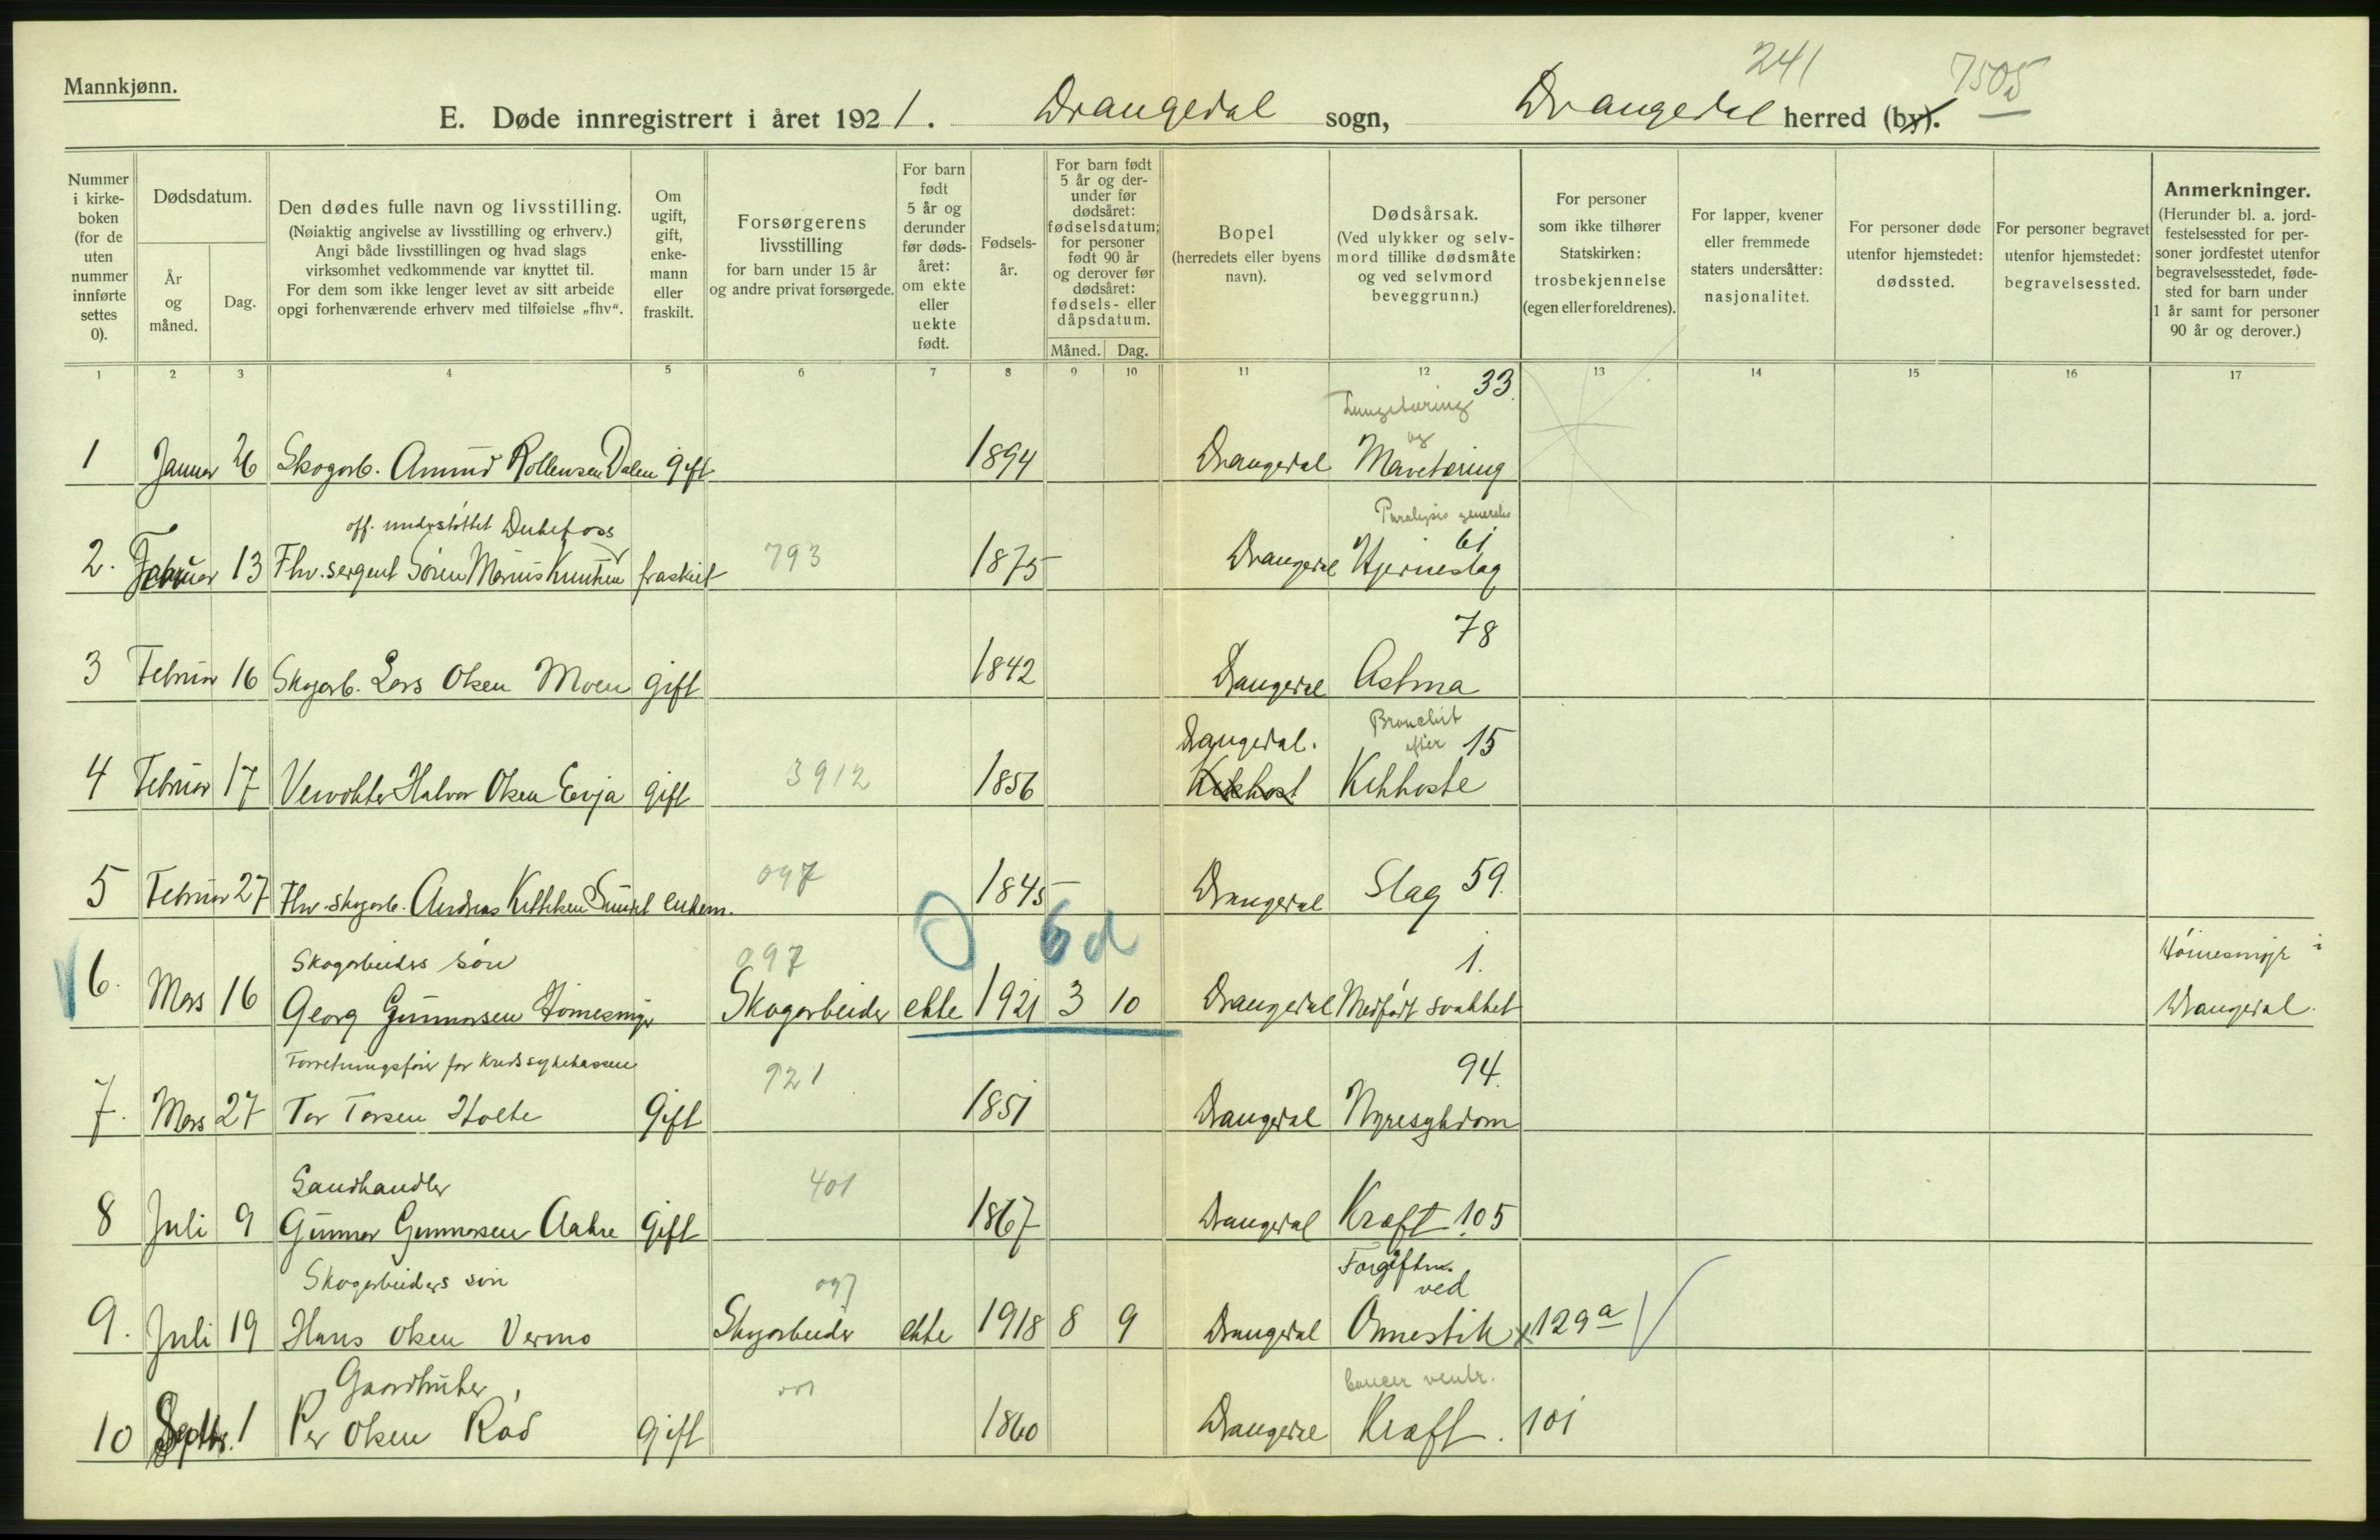 241
7505
Mannkjønn.
E. Døde innregistrert i året 1921. Drangedal sogn, Drangedal herred (by).
Nummer i kirkeboken (for de uten nummer innførte settes 0).
Dødsdatum.
År og måned.
Dag.
Den dødes fulle navn og livsstilling.
(Nøiaktig angivelse av livsstilling og erhverv.)
Angi både livsstillingen og hvad slags
virksomhet vedkommende var knyttet til.
For dem som ikke lenger levet av sitt arbeide
opgi forhenværende erhverv med tilføielse „fhv“.
Om ugift, gift, enkemann eller fraskilt.
Forsørgerens livsstilling
for barn under 15 år
og andre privat forsørgede.
For barn født 5 år og derunder før dødsåret: om ekte eller uekte født.
Fødselsår.
For barn født 5 år og derunder før dødsåret: fødselsdatum; for personer født 90 år og derover før dødsåret: fødsels- eller dåpsdatum.
Måned.
Dag.
Bopel
(herredets eller byens navn).
Dødsårsak.
(Ved ulykker og selvmord tillike dødsmåte og ved selvmord beveggrunn.)
For personer som ikke tilhører Statskirken: trosbekjennelse (egen eller foreldrenes).
For lapper, kvener eller fremmede staters undersåtter: nasjonalitet.
For personer døde utenfor hjemstedet: dødssted.
For personer begravet utenfor hjemstedet: begravelsessted.
Anmerkninger.
(Herunder bl. a. jordfestelsessted for personer jordfestet utenfor begravelsesstedet, fødested for barn under 1 år samt for personer 90 år og derover.)
1 2 3 4 5 6 7 8 9 10 11 12 13 14 15 16 17
Lungetæring 33.
og
1 Januar 26 Skogarb. Amund Rollensen Dalen gift 1894 Drangedal Mavetæring
off. understøttet Dukefoss Paralysis generalis
2. Februar 13 Fhv. sergent Søren Marius Knutsen fraskilt 793 1875 Drangedal Hjerneslag 61
78
3 Februar 16 Skogarb. Lars Olsen Moen gift 1842 Drangedal Astma
Drangedal. Bronchit efter 15
4 Februar 17 Veivokter Halvor Olsen Eevja gift 3912 1856 Kikhost Kikhoste
5 Februar 27 Fhv. skogarb. Andreas Kittilsen Sundet enkem. 097 1845 Drangedal Slag 59.
0 6 d
Skogarbeiders søn 097 1. i
6. Mars 16 Georg Gunnarsen Hómesmyr Skogarbeider ekte 1921 3 10 Drangedal Medfødt svakhet Hómesmyr Drangedal.
Forretningsfører for Kredssykekassen 921 94.
7. Mars 27 Tor Torsen Holte Gift 1851 Drangedal Nyresykdom
Landhandler 401
8 Juli 9 Gunnar Gunnarsen Aakre Gift 1867 Drangedal Kræft 105
Skogarbeiders søn 097 Forgiftn. ved
9. Juli 19 Hans Olsen Vermo Skogarbeider ekte 1918 8 9 Drangedal Ormestik x 129 a
Gaardbruker 001 Cancer ventr.
10 Septbr. 1 Per Olsen Rød gift 1860 Drangedal Kræft. 101